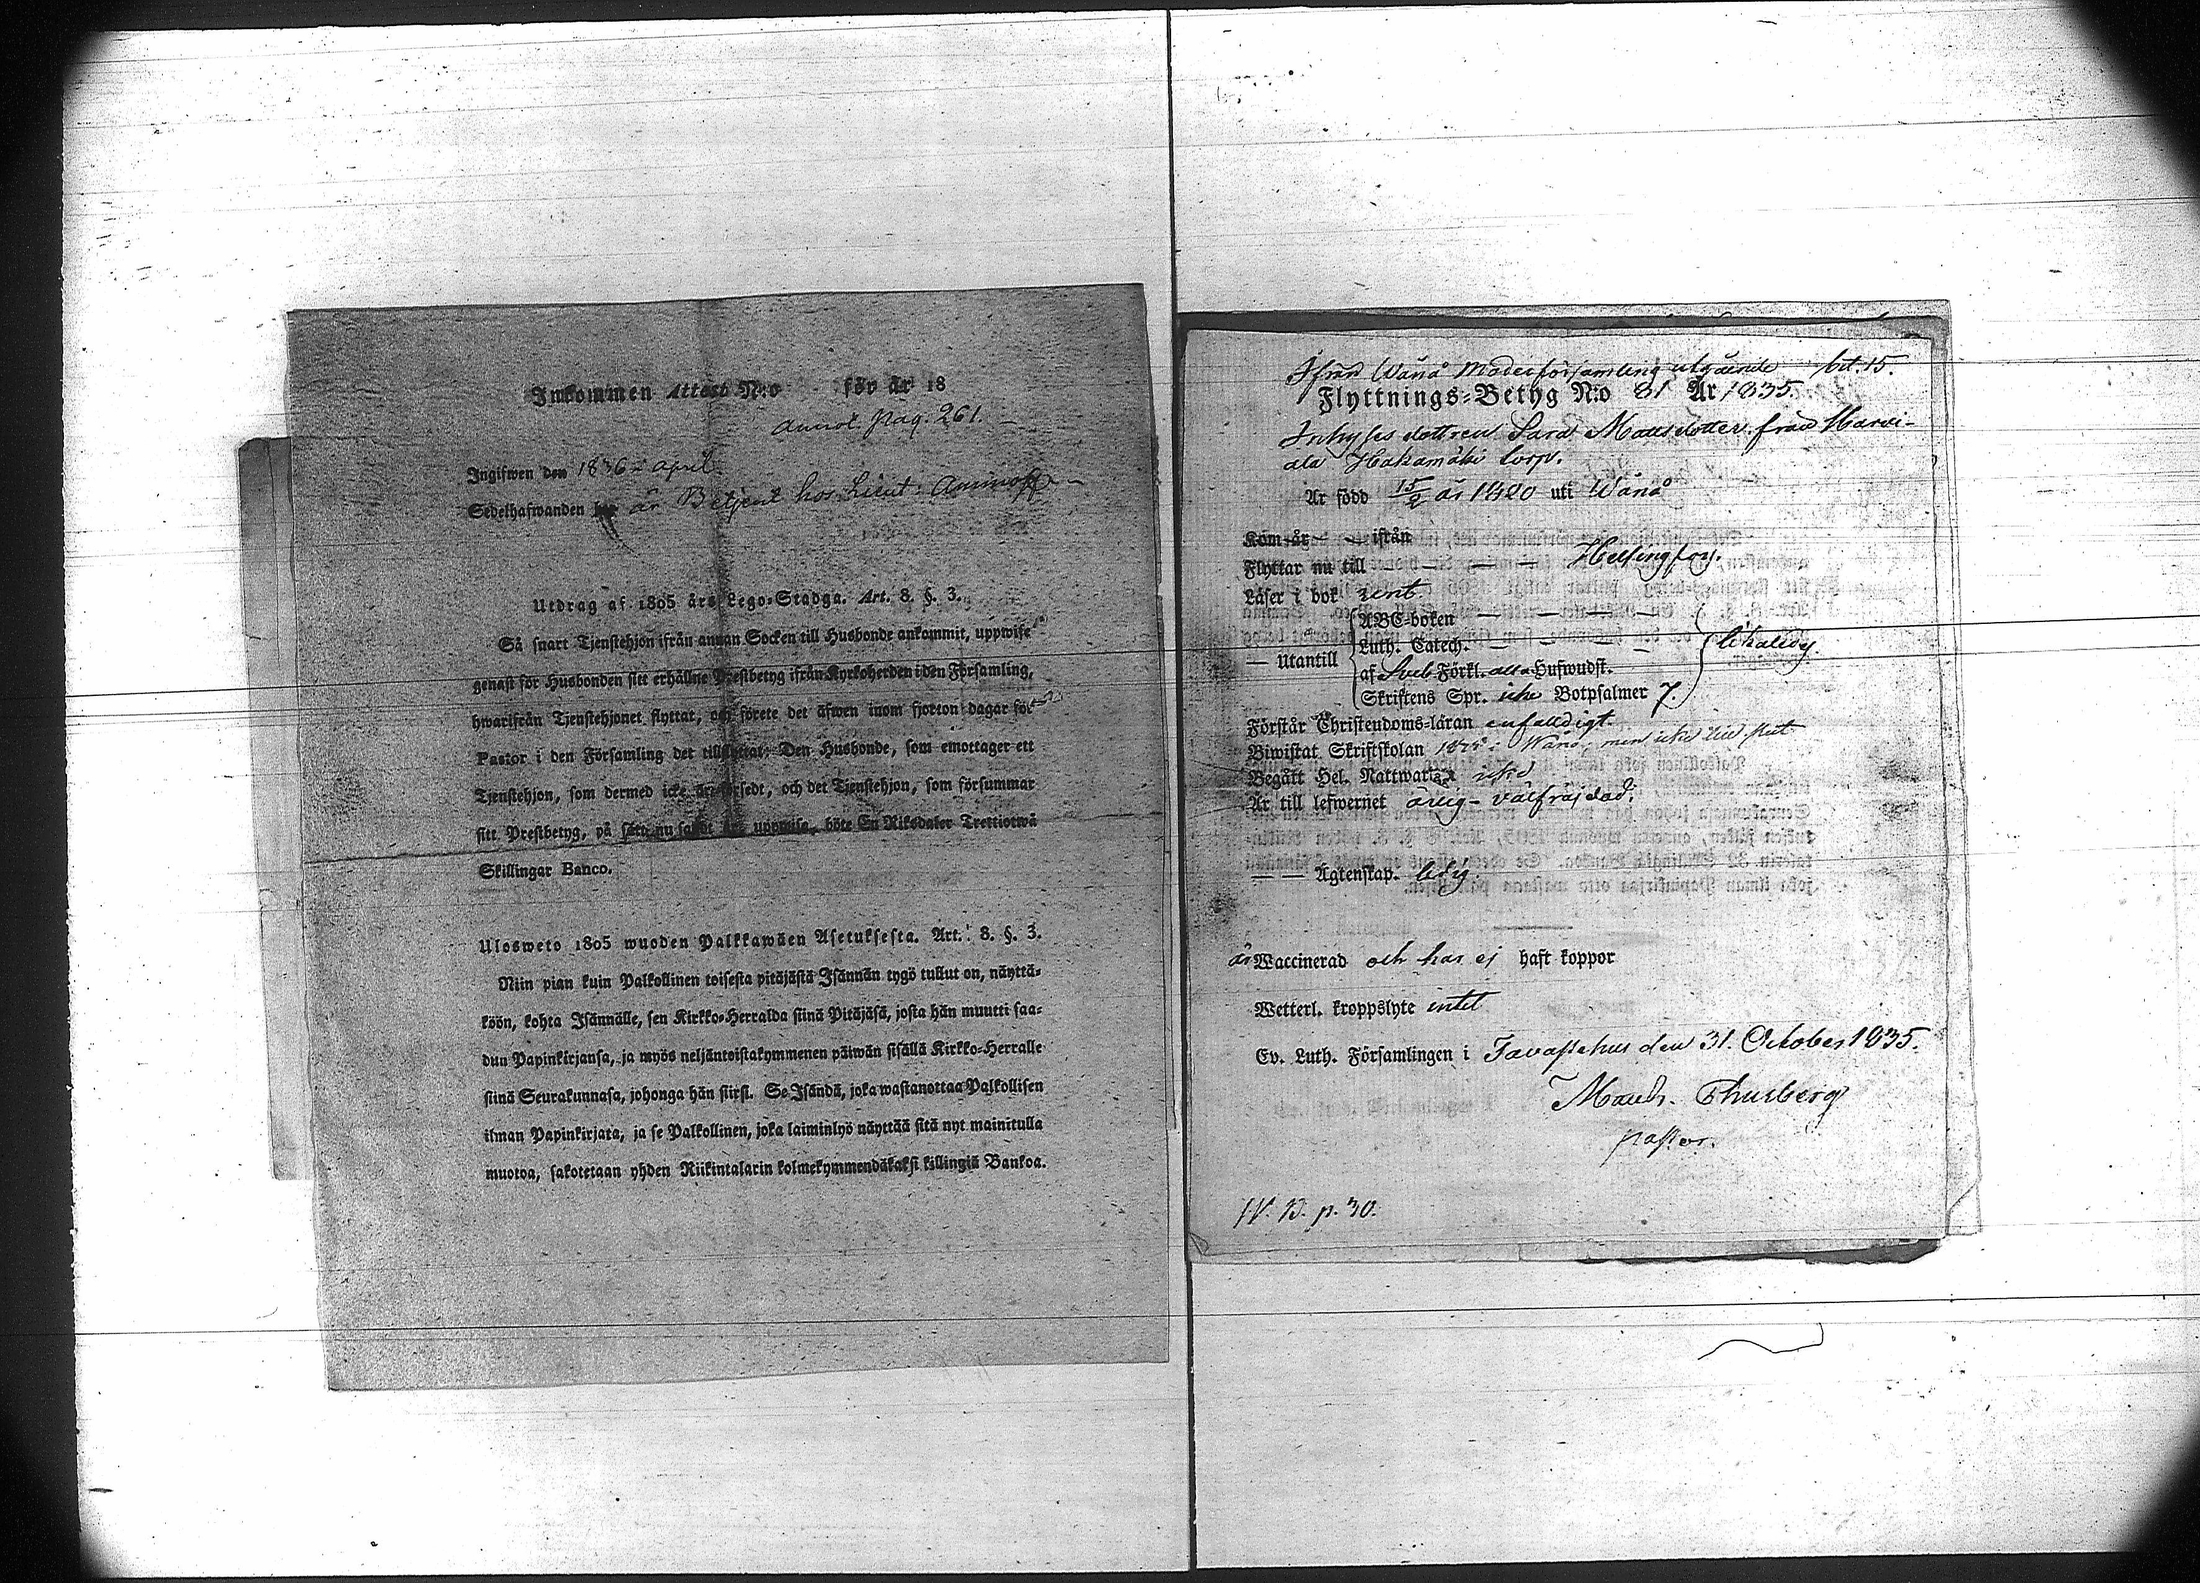 Inkommen Attest N:o för år 18
annot. pag. 261.
Ingifwen den 1836 april
Sedelhafwanden är Betjent hos Lieut: Aminoff
Utdrag af 1805 års Lego-Stadga. Art. 8. §. 3.
Så snart Tjenstehjon ifrån annan Socken till Husbonde ankommit, uppwise
genast för Husbonden sitt erhållne Prestbetyg ifrån Kyrkoherden i den Församling,
hwarifrån Tjenstehjonet flyttat, och förete det äfwen inom fjorton dagar för
Pastor i den Församling det tillflyttat. Den Husbonde, som emottager ett
Tjenstehjon, som dermed icke är försedt, och det Tjenstehjon, som försummar
sitt Prestbetyg, på sätt nu sagdt är uppwisa, böte En Riksdaler Trettiotwå
Skillingar Banco.
Ulosweto 1805 wuoden Palkkawäen Asetuksesta. Art. 8. §. 3.
Niin pian kuin Palkollinen toisesta pitäjästä Isännän tygö tullut on, näyttä-
köön, kohta Isännälle, sen Kirkko-Herralda siinä Pitäjäsä, josta hän muutti saa-
dun Papinkirjansa, ja myös neljäntoistakymmenen päiwän sisällä Kirkko-Herralle
siinä Seurakunnasa, johonga hän siirsi. Se Isändä, joka wastanottaa Palkollisen
ilman Papinkirjata, ja se Palkollinen, joka laiminlyö näyttää sitä nyt mainitulla
muotoa, sakotetaan yhden Riikintalarin kolmekymmendäkaksi killingiä Bankoa.
Ifrån Wånå Moderförsamling utgående bet. 15.
Flyttnings-Betyg N:o 81 År 1835.
Inhyses dottren Sara Mattsdotter från Harvi-
ala Hakamäki torp.
Är född 15/2 år 1820 uti Wånå
Kom år ifrån
Flyttar nu till — — — Helsingfors.
Läser i bok rent.
ABC-boken — — —
Luth. Catech. — — —
— Utantill likaledes
af Sveb. Förkl. alla Hufwudst.
Skriftens Spr. icke Botpsalmer 7.
Förstår Christendoms-läran enfaldigt.
Biwistat Skriftskolan i Wånå, men icke till slut
Begått Hel. Nattward
Är till lefwernet ärlig - välfräjdad.
— — Ägtenskap. ledig.
är Waccinerad och har ej haft koppor
Wetterl. kroppslyte intet
Ev. Luth. Församlingen i Tavastehus den 31. October 1835.
Math. Thusberg
pastor.
W. B. p. 30.